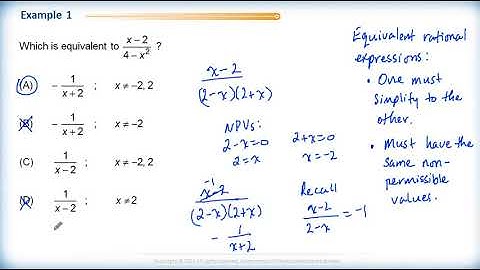 Example 1
Which is equivalent to (x − 2)/(4 − x²) ?
(A) − 1/(x + 2) ; x ≠ −2, 2
(B) − 1/(x + 2) ; x ≠ −2
(C) 1/(x − 2) ; x ≠ −2, 2
(D) 1/(x − 2) ; x ≠ 2
x−2
(2−x)(2+x)
NPVs:
2−x=0 2+x=0
2=x x=−2
−1
x−2
(2−x)(2+x)
− 1/(x+2)
Recall
(x−2)/(2−x) = −1
Equivalent rational
expressions:
• One must
simplify to the
other.
• Must have the
same non-
permissible
values.